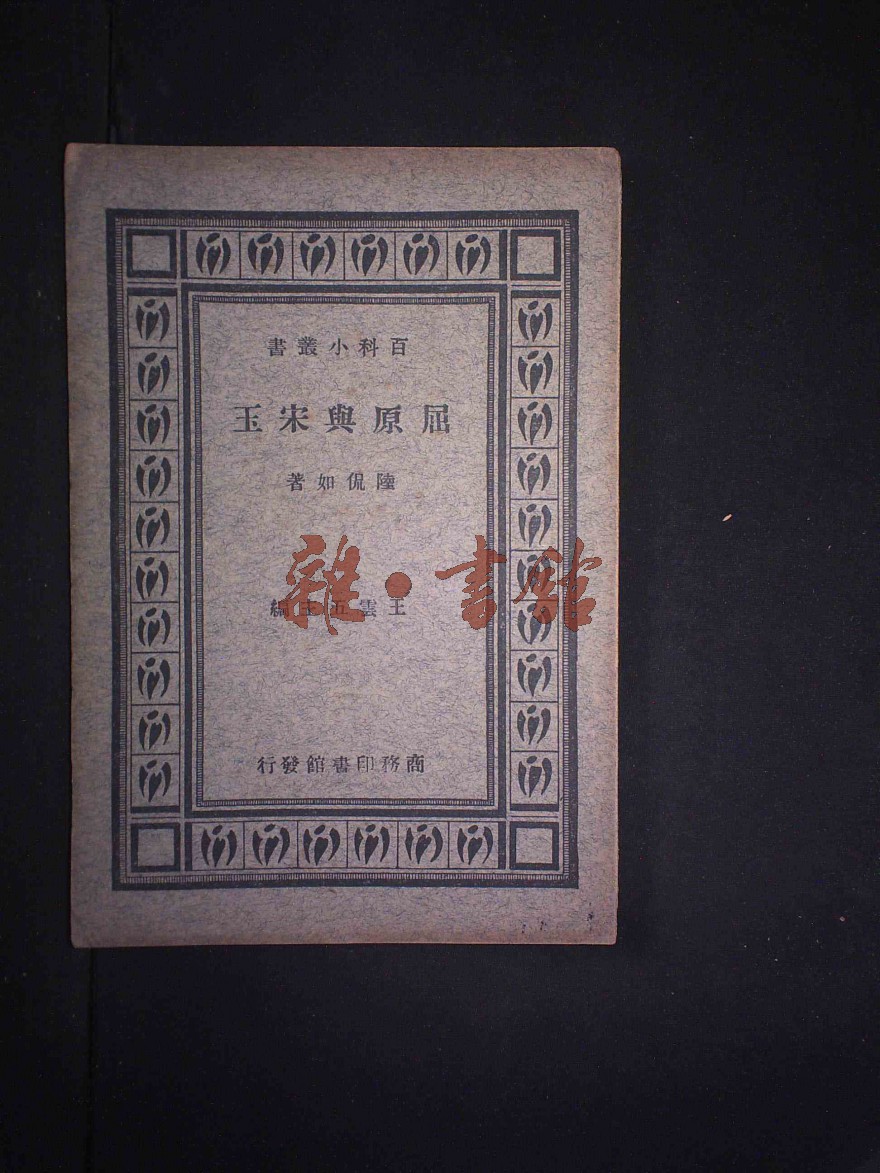 百科小叢書
屈原與宋玉
陸侃如著
王雲五主編
雜·書館
商務印書館發行